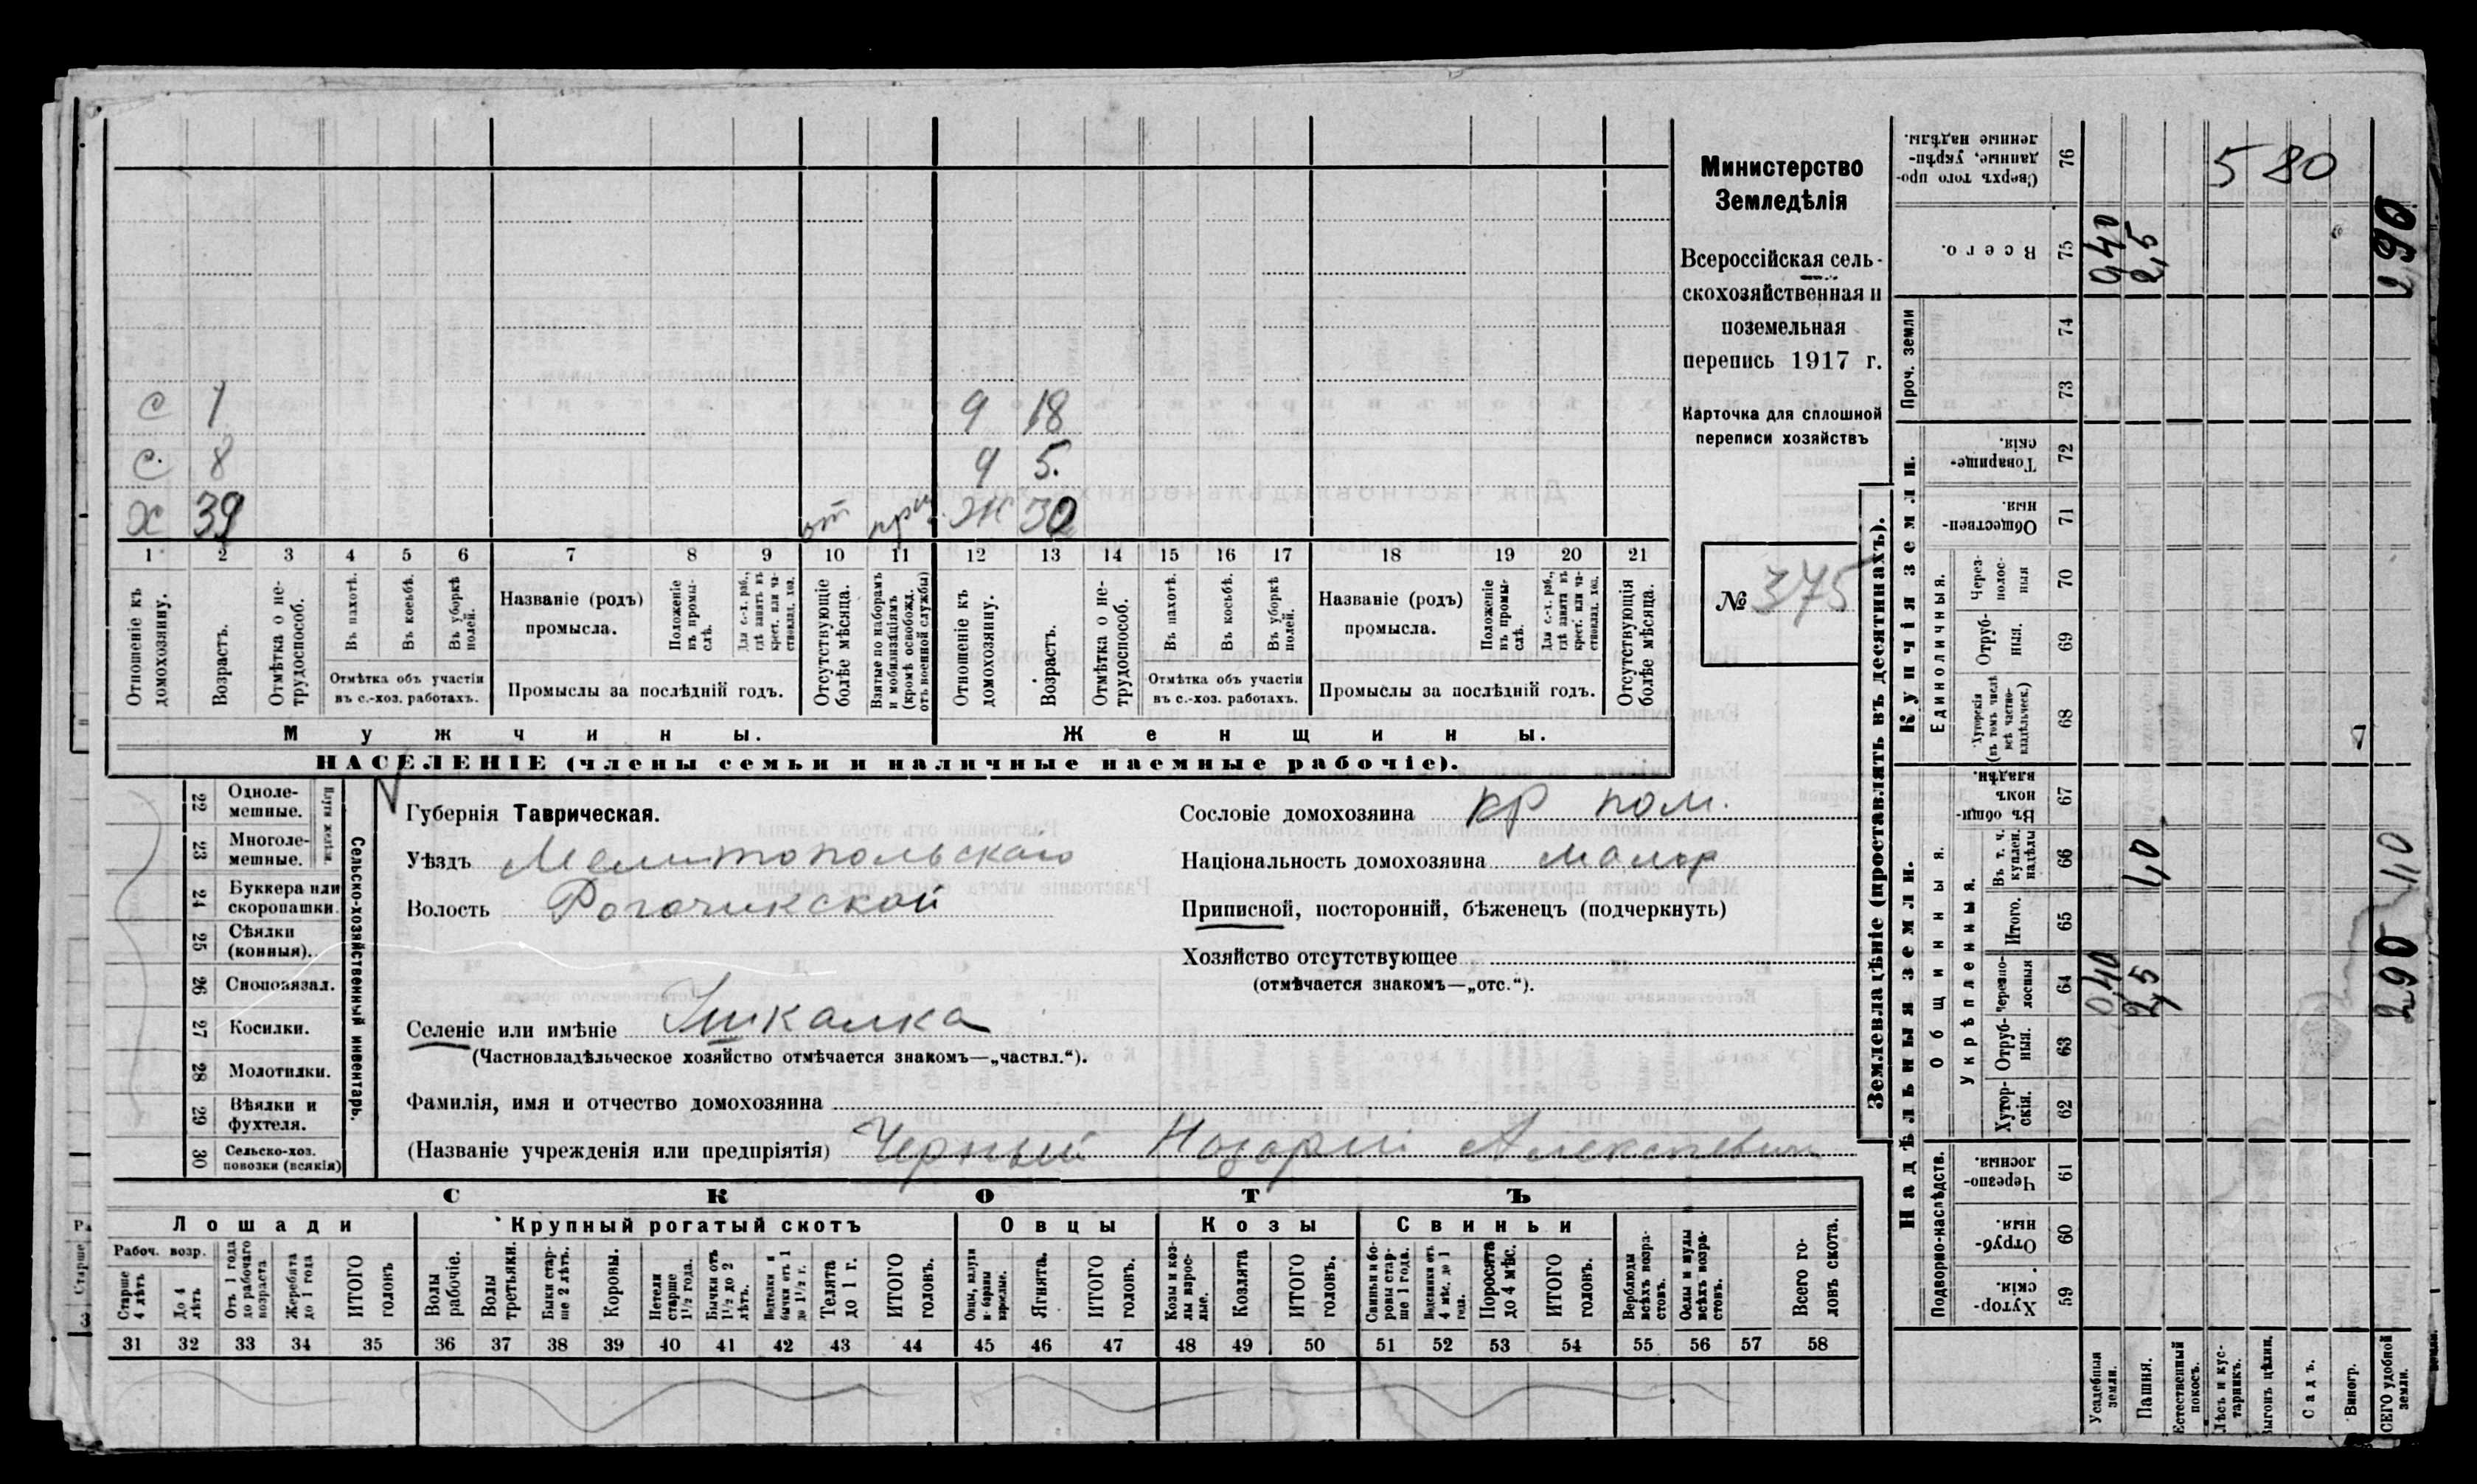 Министерство
Земледѣлія
Всероссійская сель-
скохозяйственная и
поземельная
перепись 1917 г.
Карточка для сплошной
переписи хозяйствъ
№ 375
С 1 9 18
С. 8 9 5.
Х 39 от Ж 30
1 2 3 4 5 6 7 8 9 10 11 12 13 14 15 16 17 18 19 20 21
Отношеніе къ домохозяину.
Возрастъ.
Отмѣтка о не-трудоспособ.
Въ пахотѣ.
Въ косьбѣ.
Въ уборкѣ полей.
Отмѣтка объ участіи
въ с.-хоз. работахъ.
Названіе (родъ)
промысла.
Положеніе въ промы-слѣ.
Для с.-х. раб., гдѣ занятъ въ крест. или ча-стновлад. хоз.
Промыслы за послѣдній годъ.
Отсутствующіе болѣе мѣсяца.
Взятые по наборамъ и мобилизаціямъ (кромѣ освобожд. отъ военной службы)
Отношеніе къ домохозяину.
Возрастъ.
Отмѣтка о не-трудоспособ.
Въ пахотѣ.
Въ косьбѣ.
Въ уборкѣ полей.
Отмѣтка объ участіи
въ с.-хоз. работахъ.
Названіе (родъ)
промысла.
Положеніе въ промы-слѣ.
Для с.-х. раб., гдѣ занята въ крест. или ча-стновлад. хоз.
Промыслы за послѣдній годъ.
Отсутствующія болѣе мѣсяца.
Мужчины.
Женщины.
НАСЕЛЕНІЕ (члены семьи и наличные наемные рабочіе).
22 Одноле-мешные.
23 Многоле-мешные.
24 Буккера или скоропашки.
25 Сѣялки (конныя).
26 Сноповязал.
27 Косилки.
28 Молотилки.
29 Вѣялки и фухтеля.
30 Сельско-хоз. повозки (всякія)
Сельско-хозяйственный инвентарь.
Губернія Таврическая.
Уѣздъ Мелитопольскаго
Волость Рогачикской
Селеніе или имѣніе Ушкалка
(Частновладѣльческое хозяйство отмѣчается знакомъ—„частвл.“).
Фамилія, имя и отчество домохозяина
(Названіе учрежденія или предпріятія) Черный Назарій Алексѣевич
Сословіе домохозяина кр пом.
Національность домохозяина малор
Приписной, посторонній, бѣженецъ (подчеркнуть)
Хозяйство отсутствующее
(отмѣчается знакомъ—„отс.“).
СКОТЪ
Лошади
Крупный рогатый скотъ
Овцы
Козы
Свиньи
Рабоч. возр.
Старше 4 лѣтъ
До 4 лѣтъ
Отъ 1 года до рабочаго возраста
Жеребята до 1 года
ИТОГО головъ
Волы рабочіе.
Волы третьяки.
Быки стар-ше 2 лѣтъ.
Коровы.
Нетели старше 1½ года.
Бычки отъ 1½ до 2 лѣтъ.
Телята до 1 г.
ИТОГО головъ.
Ягнята.
ИТОГО головъ.
Козы и коз-лы взрос-лые.
Козлята
ИТОГО головъ.
Свиньи и бо-ровы стар-ше 1 года.
Подсвинки отъ 4 мѣс. до 1 года.
Поросята до 4 мѣс.
ИТОГО головъ.
Верблюды всѣхъ возра-стовъ.
Ослы и мулы всѣхъ возра-стовъ.
Всего го-ловъ скота.
31 32 33 34 35 36 37 38 39 40 41 42 43 44 45 46 47 48 49 50 51 52 53 54 55 56 57 58
Землевладѣніе (проставлять въ десятинахъ).
Сверхъ того про-данные, укрѣп-ленные надѣлы. 76 580
Всего. 75 0,40 2,5 2,90
Проч. земли 74
73
Купчія земли.
Товарище-скія. 72
Обществен-ныя. 71
Единоличныя.
Через-полос-ныя 70
Отруб-ныя. 69
Хуторскія (въ томъ числѣ всѣ частно-владѣльческ.) 68
Надѣльныя земли.
Общинныя.
Въ общи-номъ владѣн. 67
Укрѣпленныя.
Въ т. ч. куплен. надѣлы 66 1,0 1,0
Итого. 65
Черезпо-лосныя 64 0,40 2,5 2,90
Отруб-ныя. 63
Хутор-скія. 62
Подворно-наслѣдств.
Черезпо-лосныя. 61
Отруб-ныя. 60
Хутор-скія. 59
Усадебныя земли.
Пашня.
Естественный покосъ.
Лѣсъ и кус-тарникъ.
Выгонъ цѣлин.
Садъ.
Виногр.
ВСЕГО удобной земли.